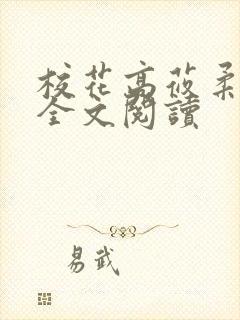 校花高莜柔
全文閱讀
易武